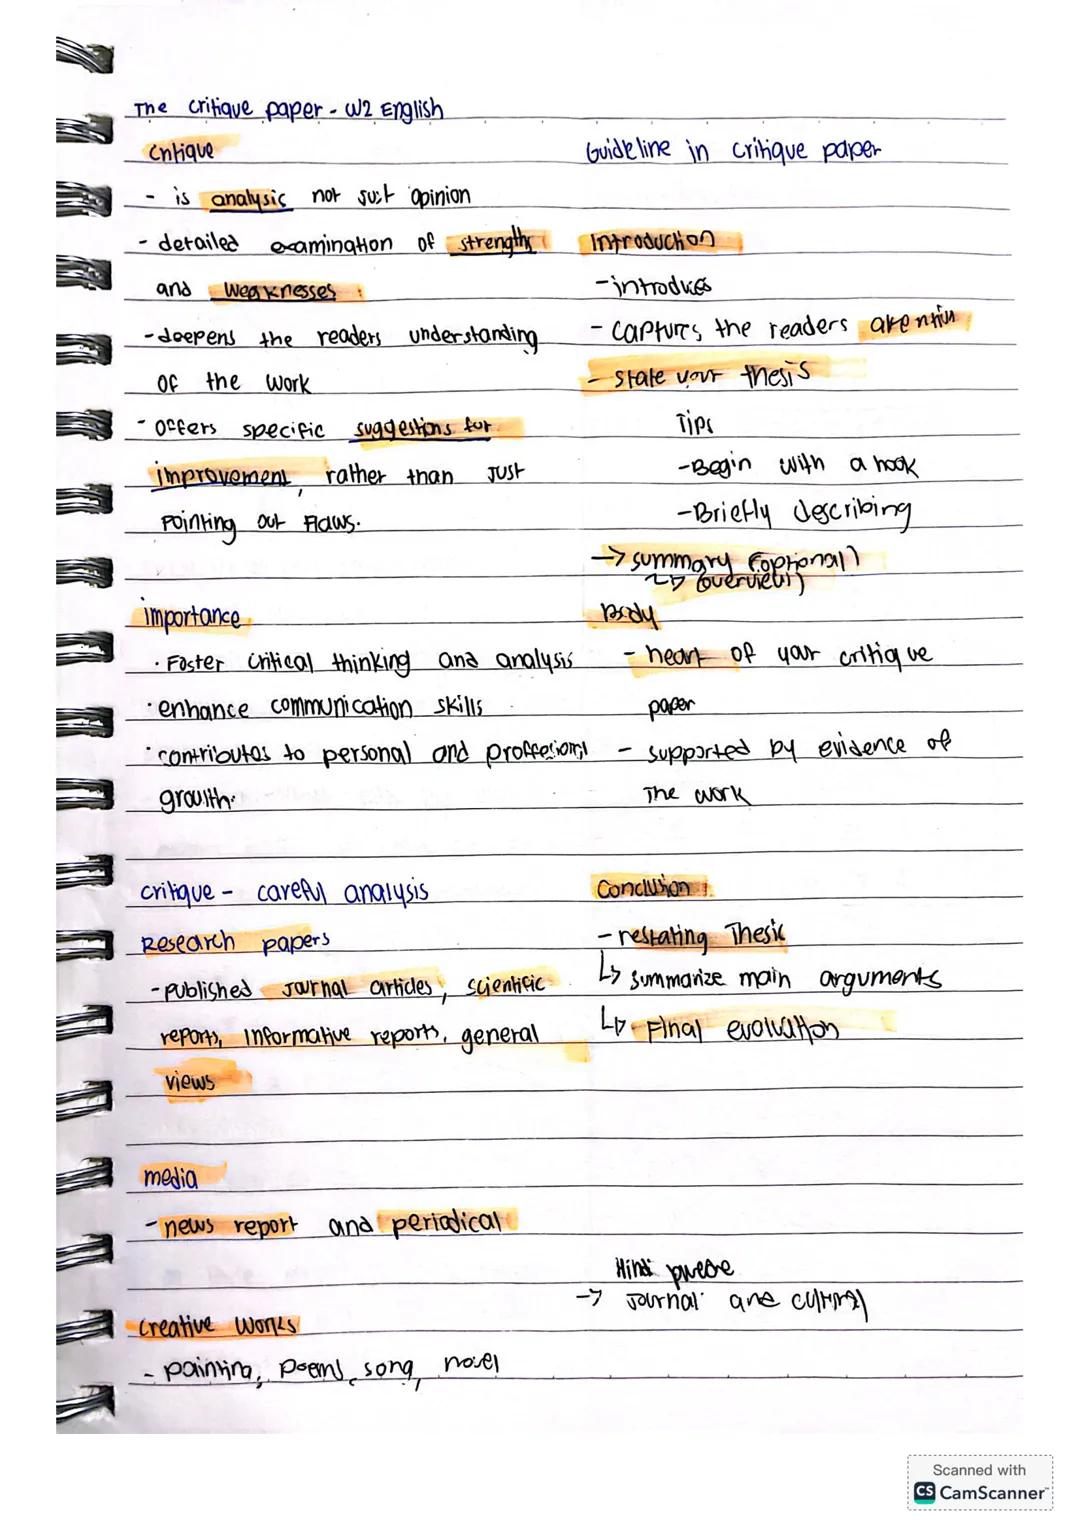 The critique paper - W2 English
Critique
- is analysis not just opinion
- detailed examination of strength
and weaknesses
- deepens the readers understanding
of the work
- offers specific suggestions for
improvement, rather than just
pointing out flaws.
importance
· Foster critical thinking and analysis
· enhance communication skills
· contributes to personal and proffesional
growth.
critique - careful analysis
Research papers
- published journal articles, scientific
reports, informative reports, general
views
media
- news report and periodical
Creative Works
- painting, poems, song, novel
Guideline in critique paper
Introduction
- introduces
- captures the readers attention
- state your thesis
Tips
- Begin with a hook
- Briefly describing
→ summary (optional)
↳ (overview)
Body
- heart of your critique
paper
- supported by evidence of
the work
Conclusion
- restating Thesis
↳ summarize main arguments
↳ Final evaluation
Hindi pwede
→ Journal and
Scanned with
CS CamScanner